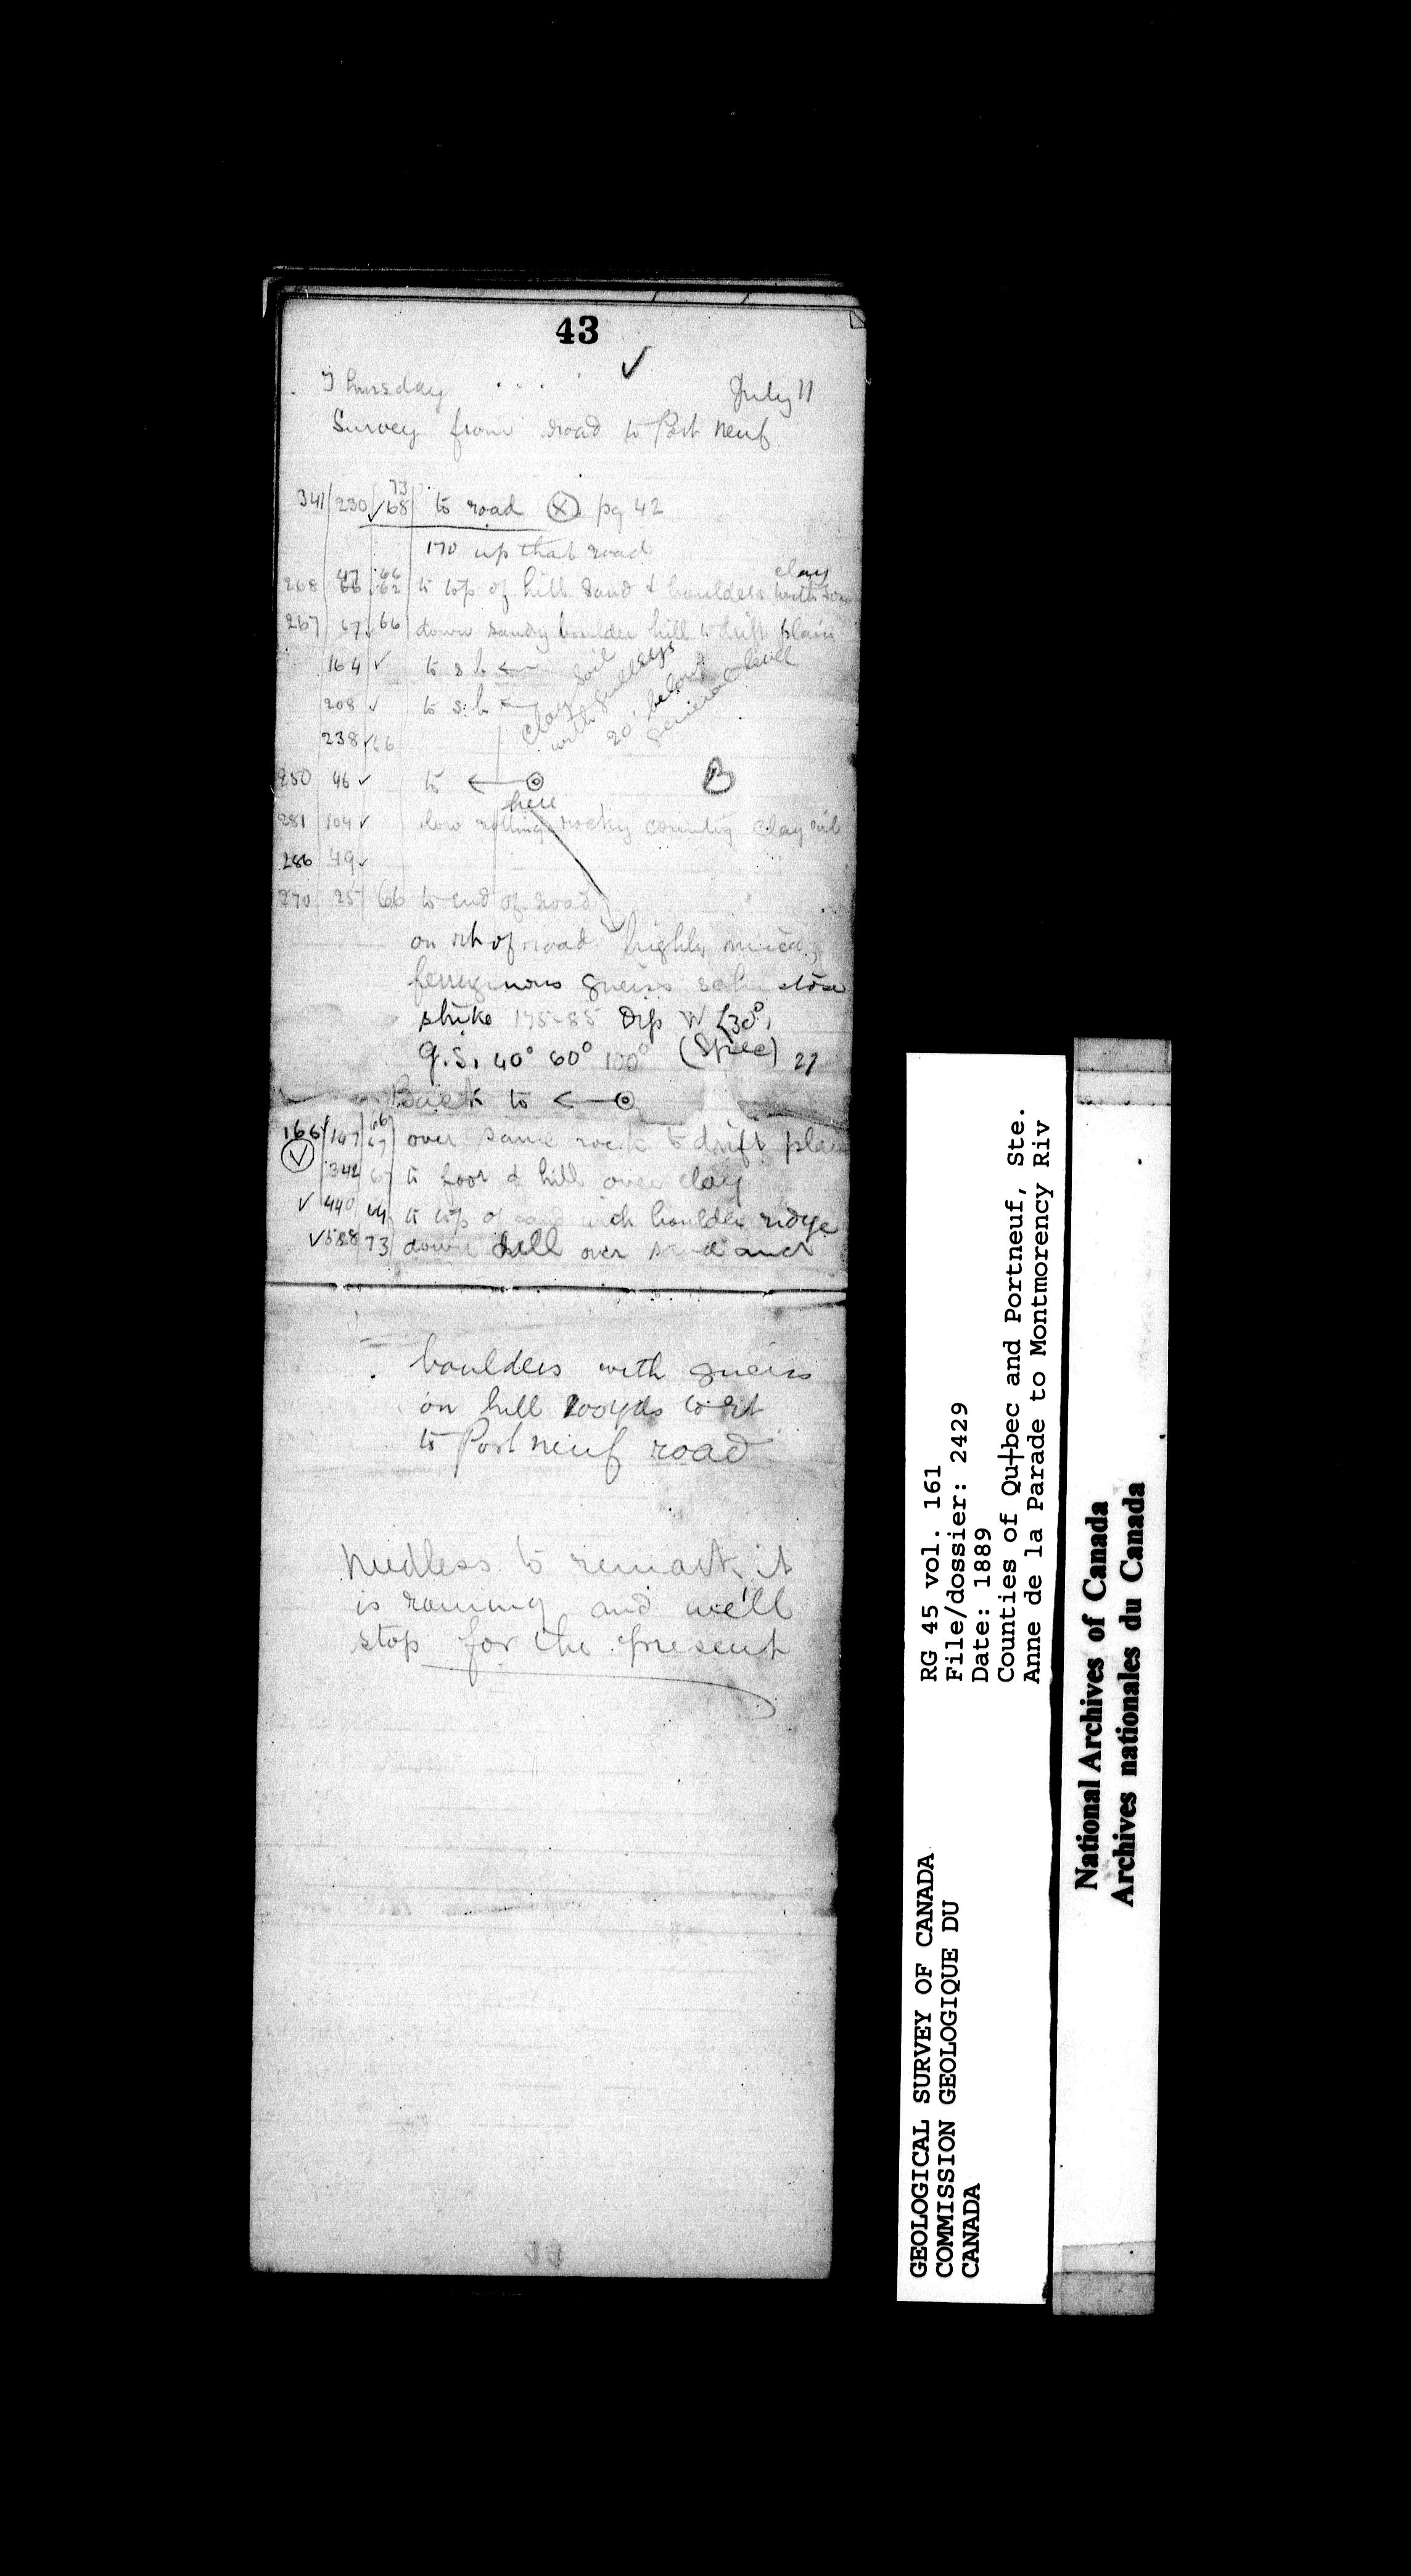 43
✓
Thursday July 11
Survey from road to Port neuf
73
341 230 ✓ 68 to road ⓧ pg 42
170 up that road
clay
47 66
268 66 62 to top of hill sand & boulders with some
267 67 66 down sandy boulder hill to drift plain
164 ✓ to s.h ←
208 ✓ to s.h ←
clay soil
with gulleys
20' below
general level
238 ✓ 66
250 46 ✓ to ←⊙ B
here
281 104 ✓ low rolling rocky country clay soil
286 49 ✓
270 25 66 to end of road
on rh of road highly micac
ferruginous gneiss
strike 175-85 Dip W <30°
g.S. 40° 60° 100° (Spec) 27
Back to ←⊙
66
166 147 67 over same rock to drift plain
✓ 342 67 to foot of hill over clay
✓ 440 64 to top of sand with boulder ridge
✓ 588 73 down hill over sand and
boulders with gneiss
on hill 200yds to rt
to Port neuf road
Needless to remark it
is raining and we'll
stop for the present
GEOLOGICAL SURVEY OF CANADA
COMMISSION GEOLOGIQUE DU
CANADA
RG 45 vol. 161
File/dossier: 2429
Date: 1889
Counties of Qu†bec and Portneuf, Ste.
Anne de la Parade to Montmorency Riv
National Archives of Canada
Archives nationales du Canada